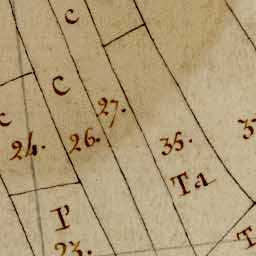 c
C
27.
c
24.
26.
35.
3
Ta
P
T
23.